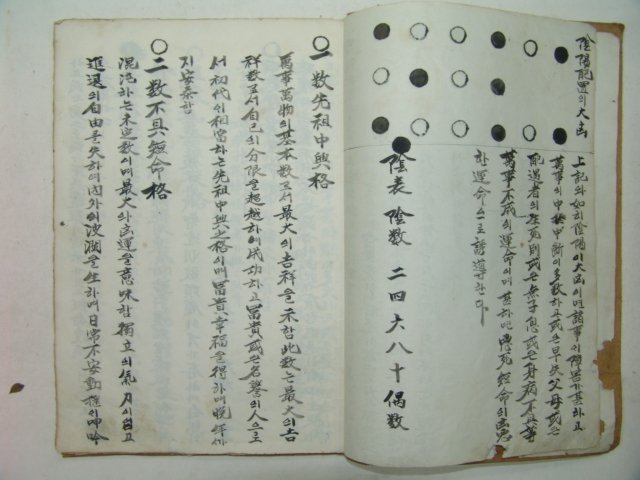 陰陽配置의大凶
上記와如히陰陽이大凶이면諸事이障害가甚하고
萬事의中途中断이多数하고或은早失父母或은
配遇者의生死別或은無子息或은身病不具等
萬事不成의運命이며甚하면 短命의
한運命으로誘導한다
陰表 陰数 二四六八十偶数
○一数先祖中興格
萬事萬物의基本数로서最大의吉祥을示함此数는最大의吉
祥数로서自己의分限을超越하여成功하고富貴或은名譽의人으로
서初代의相當하는先祖中興之格이며富貴幸福을得하며晩年까
지安泰함
○二数不具短命格
混沌하는未定数이며最大의凶運을意味함獨立의氣力이업고
進退의自由를失하여內外의波瀾을生하며日常不安動搖의呻吟